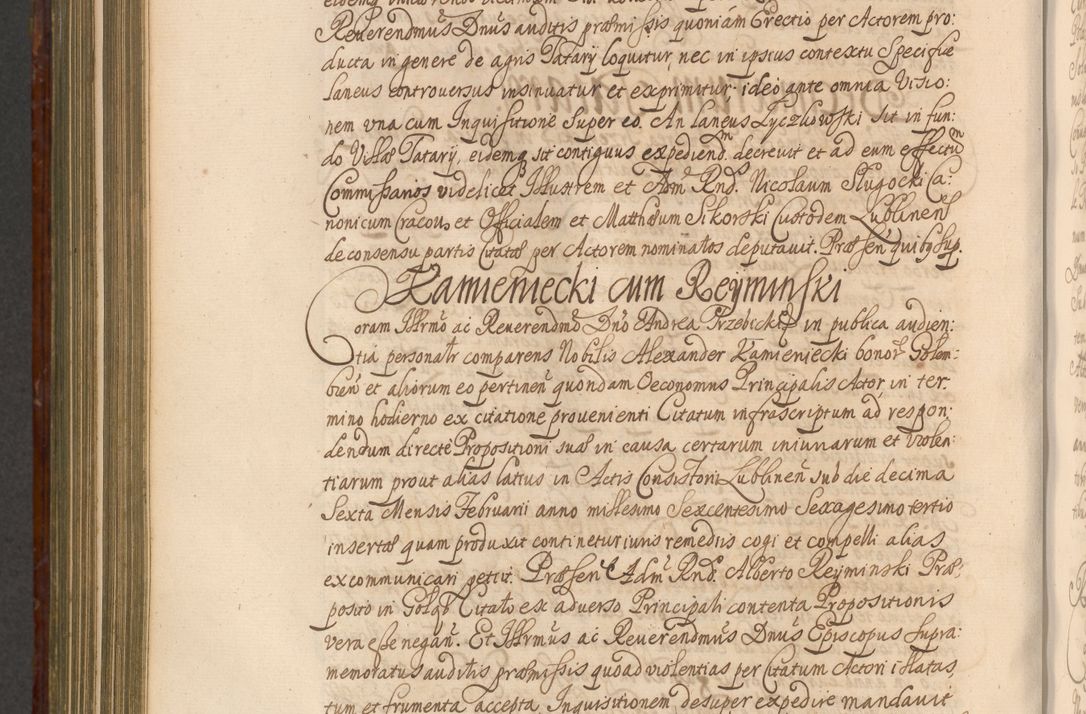 Reverendmus Dnus auditis præmissis quoniam Erectio per Actorem pro:
ducta in genere de agris Tatary loquitur, nec in ipsius contextu Specifice
laneus controversus insinuatur et exprimitur, ideo ante omnia Visio:
nem una cum Inquisitione super eo. An laneus Łyczkowski sit in fun:
do Villæ Tatary, eidemq sit contiguus expediend. decrevit et ad eum effectum
Commissarios videlicet Illustrem et Adm Rnds. Nicolaum Sługocki Ca:
nonicum Cracov, et Officialem et Matthæum Sikorski Custodem Lublinen
de consensu partis Citatæ per Actorem nominatos deputavit. Præsen quibg sup.
Kamieniecki cum Reyminski
Coram Illrmo ac Reverendmo Dno Andrea Trzebicki in publica audien:
tia personalr comparens Nobilis Alexander Kamieniecki bonor Golem:
bien et aliorum eo pertinen quondam Oeconomus Principalis Actor, in ter:
mino hodierno ex citatione provenienti Citatum infrascriptum ad respon:
dendum directe Propositioni suæ in causa certarum iniuriarum et violen:
tiarum prout alias latius in Actis Consistorij Lublinen sub die decima
Sexta Mensis Februarii anno millesimo Sexcentesimo Sexagesimo tertio
insertæ quam produxit continetur iuris remediis cogi et compelli alias
excommunicari petiit. Præsen Adm Rnd. Alberto Reyminski Præ:
posito in Gołąb Citato ex adverso Principali contenta Propositionis
vera esse negan. Et Illrmus ac Reverendmus Dnus Episcopus supra:
memoratus auditis præmissis quoad violentias per Citatum Actori illatas,
tum et frumenta accepta Inquisitionem desuper expedire mandavit